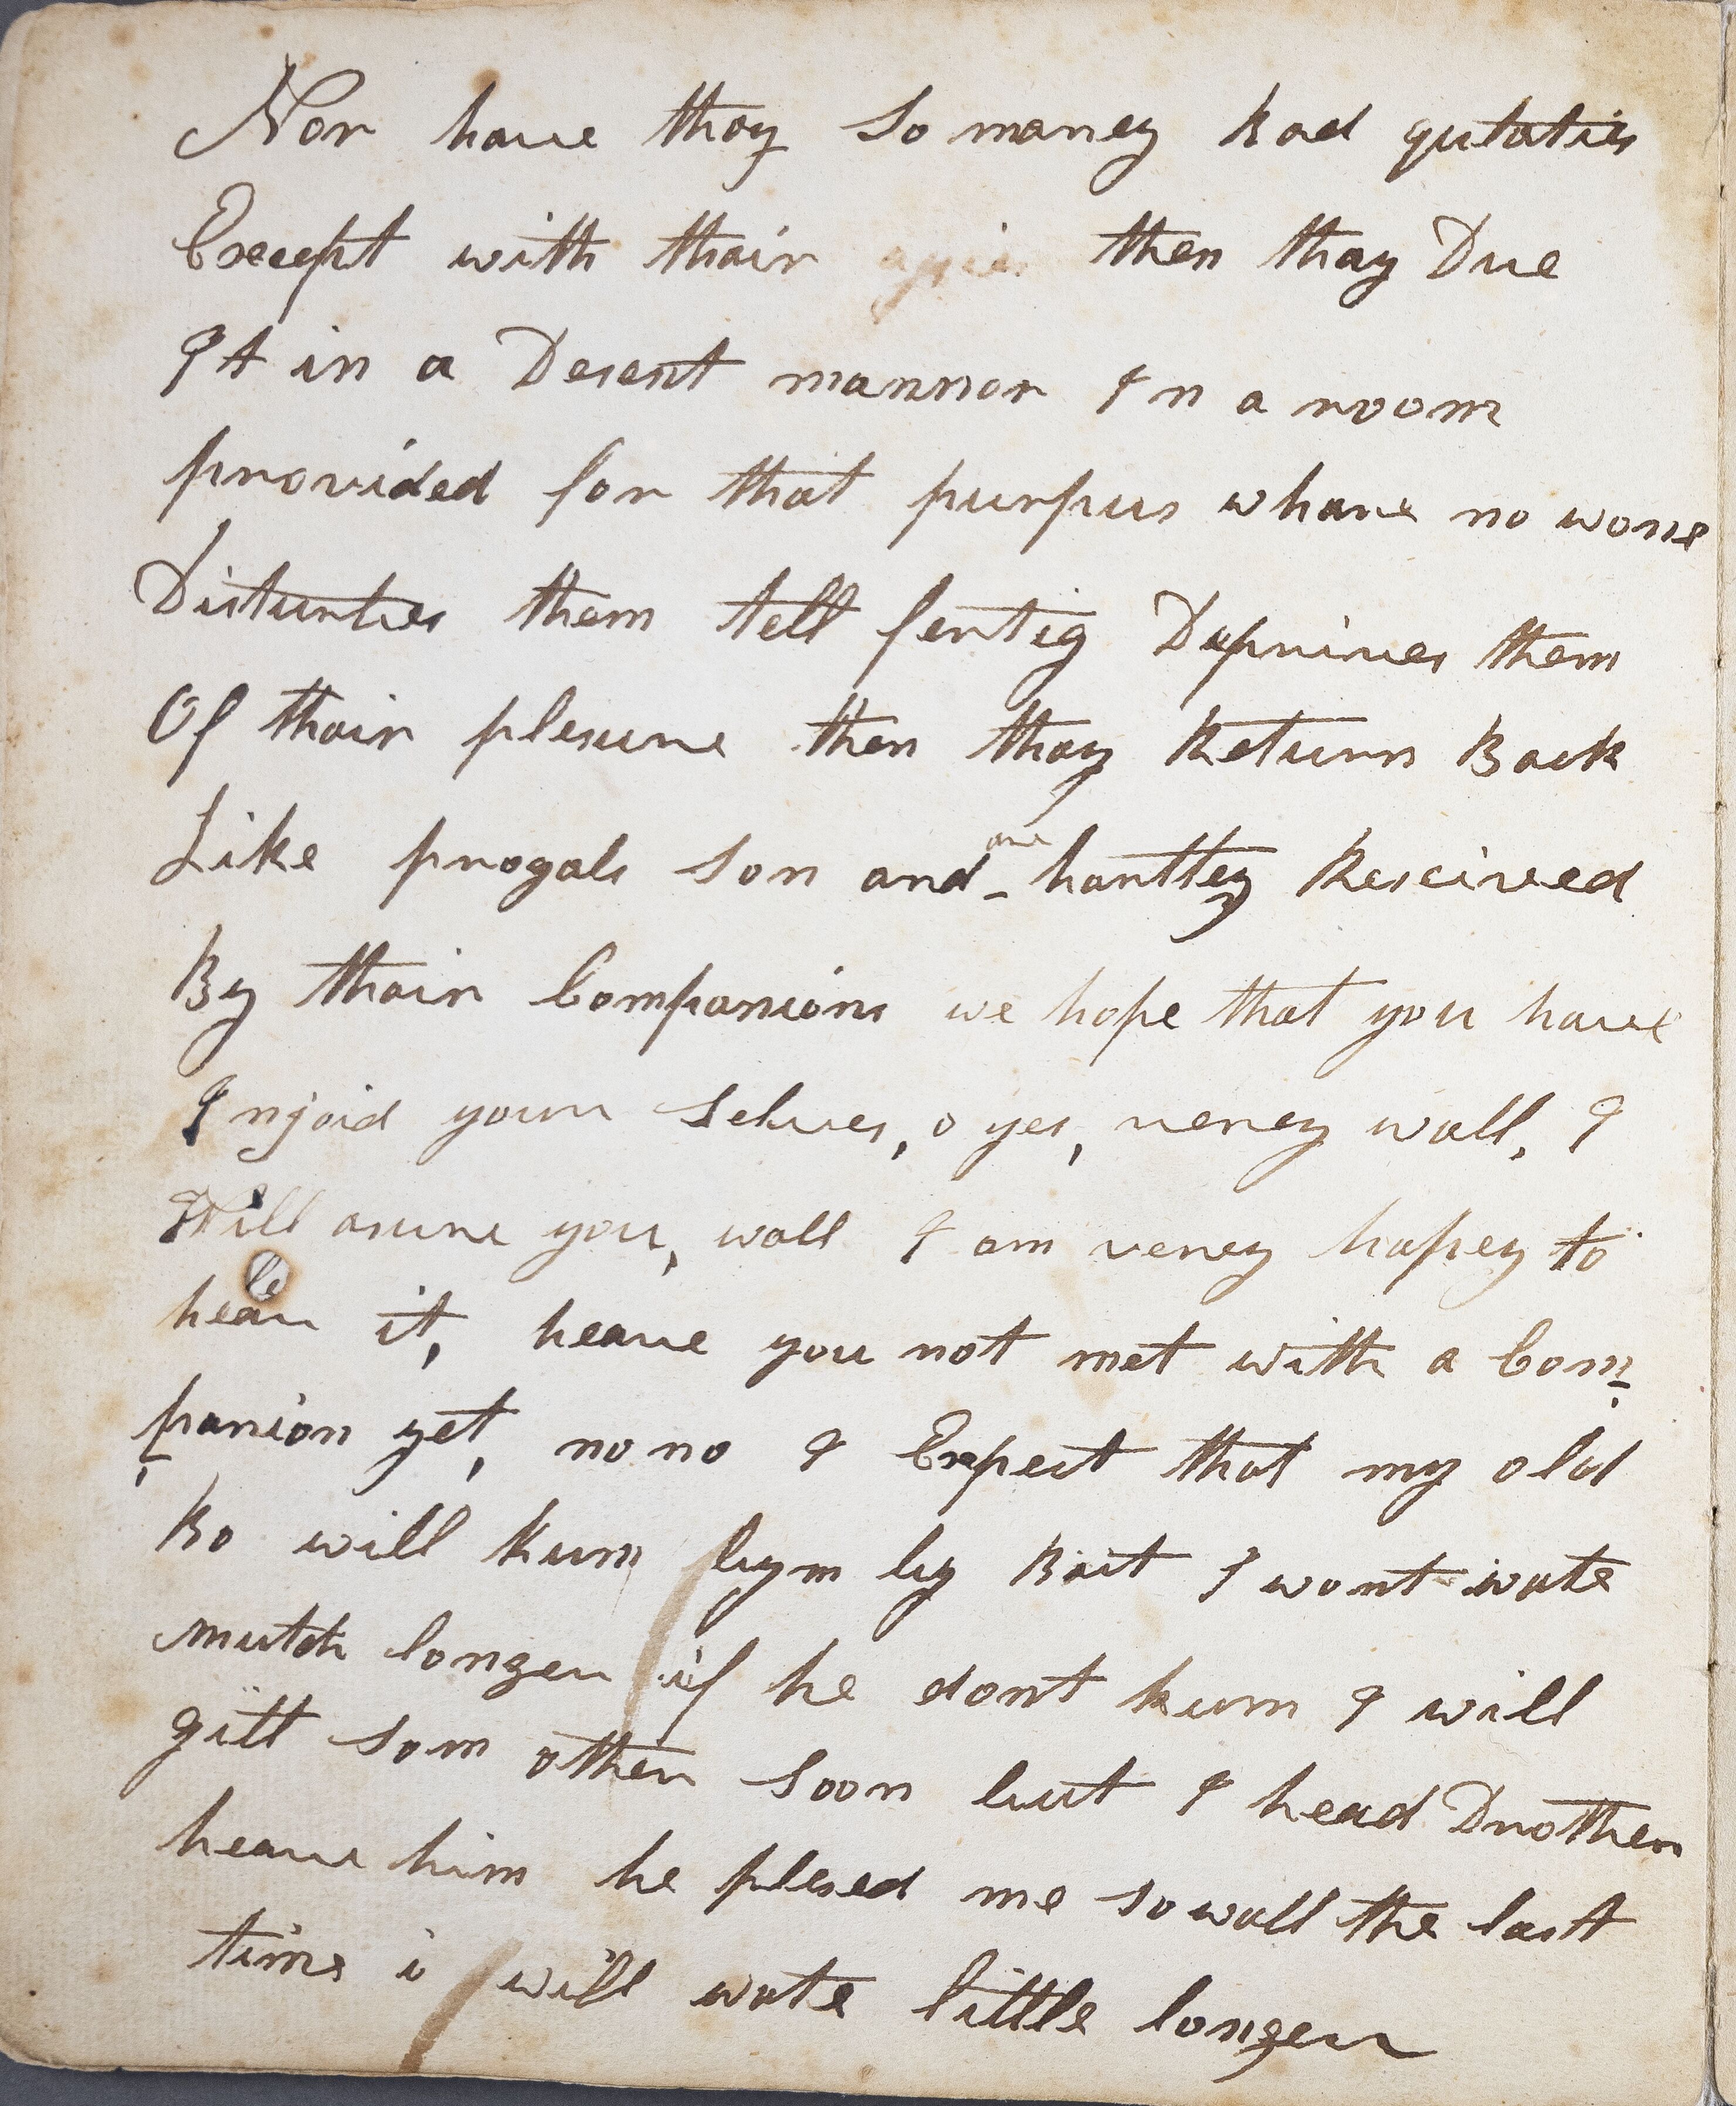 Nor have thay So maney Bad qutaties
Except with thair then thay Due
It in a Desent mannor In a room
provided for that purpus whare no wone
Disturbes them tell fertig Deprives them
Of thair plesure then thay Return Back
Like progals son and are harttey Reseived
By thair Companions we hope that you have
Injoid your Selves, o yes, verey wall, I
Will asure you, wall I am verey hapey to
hear it, heave you not met with a Com-
-panion yet, no no I Expect that my old
Bo will Kum bym by But I wont wate
mutch longer if he dont kum I will
gitt som other soon but I head Drother
heave him he plesed me so wall the last
time i will wate little longer